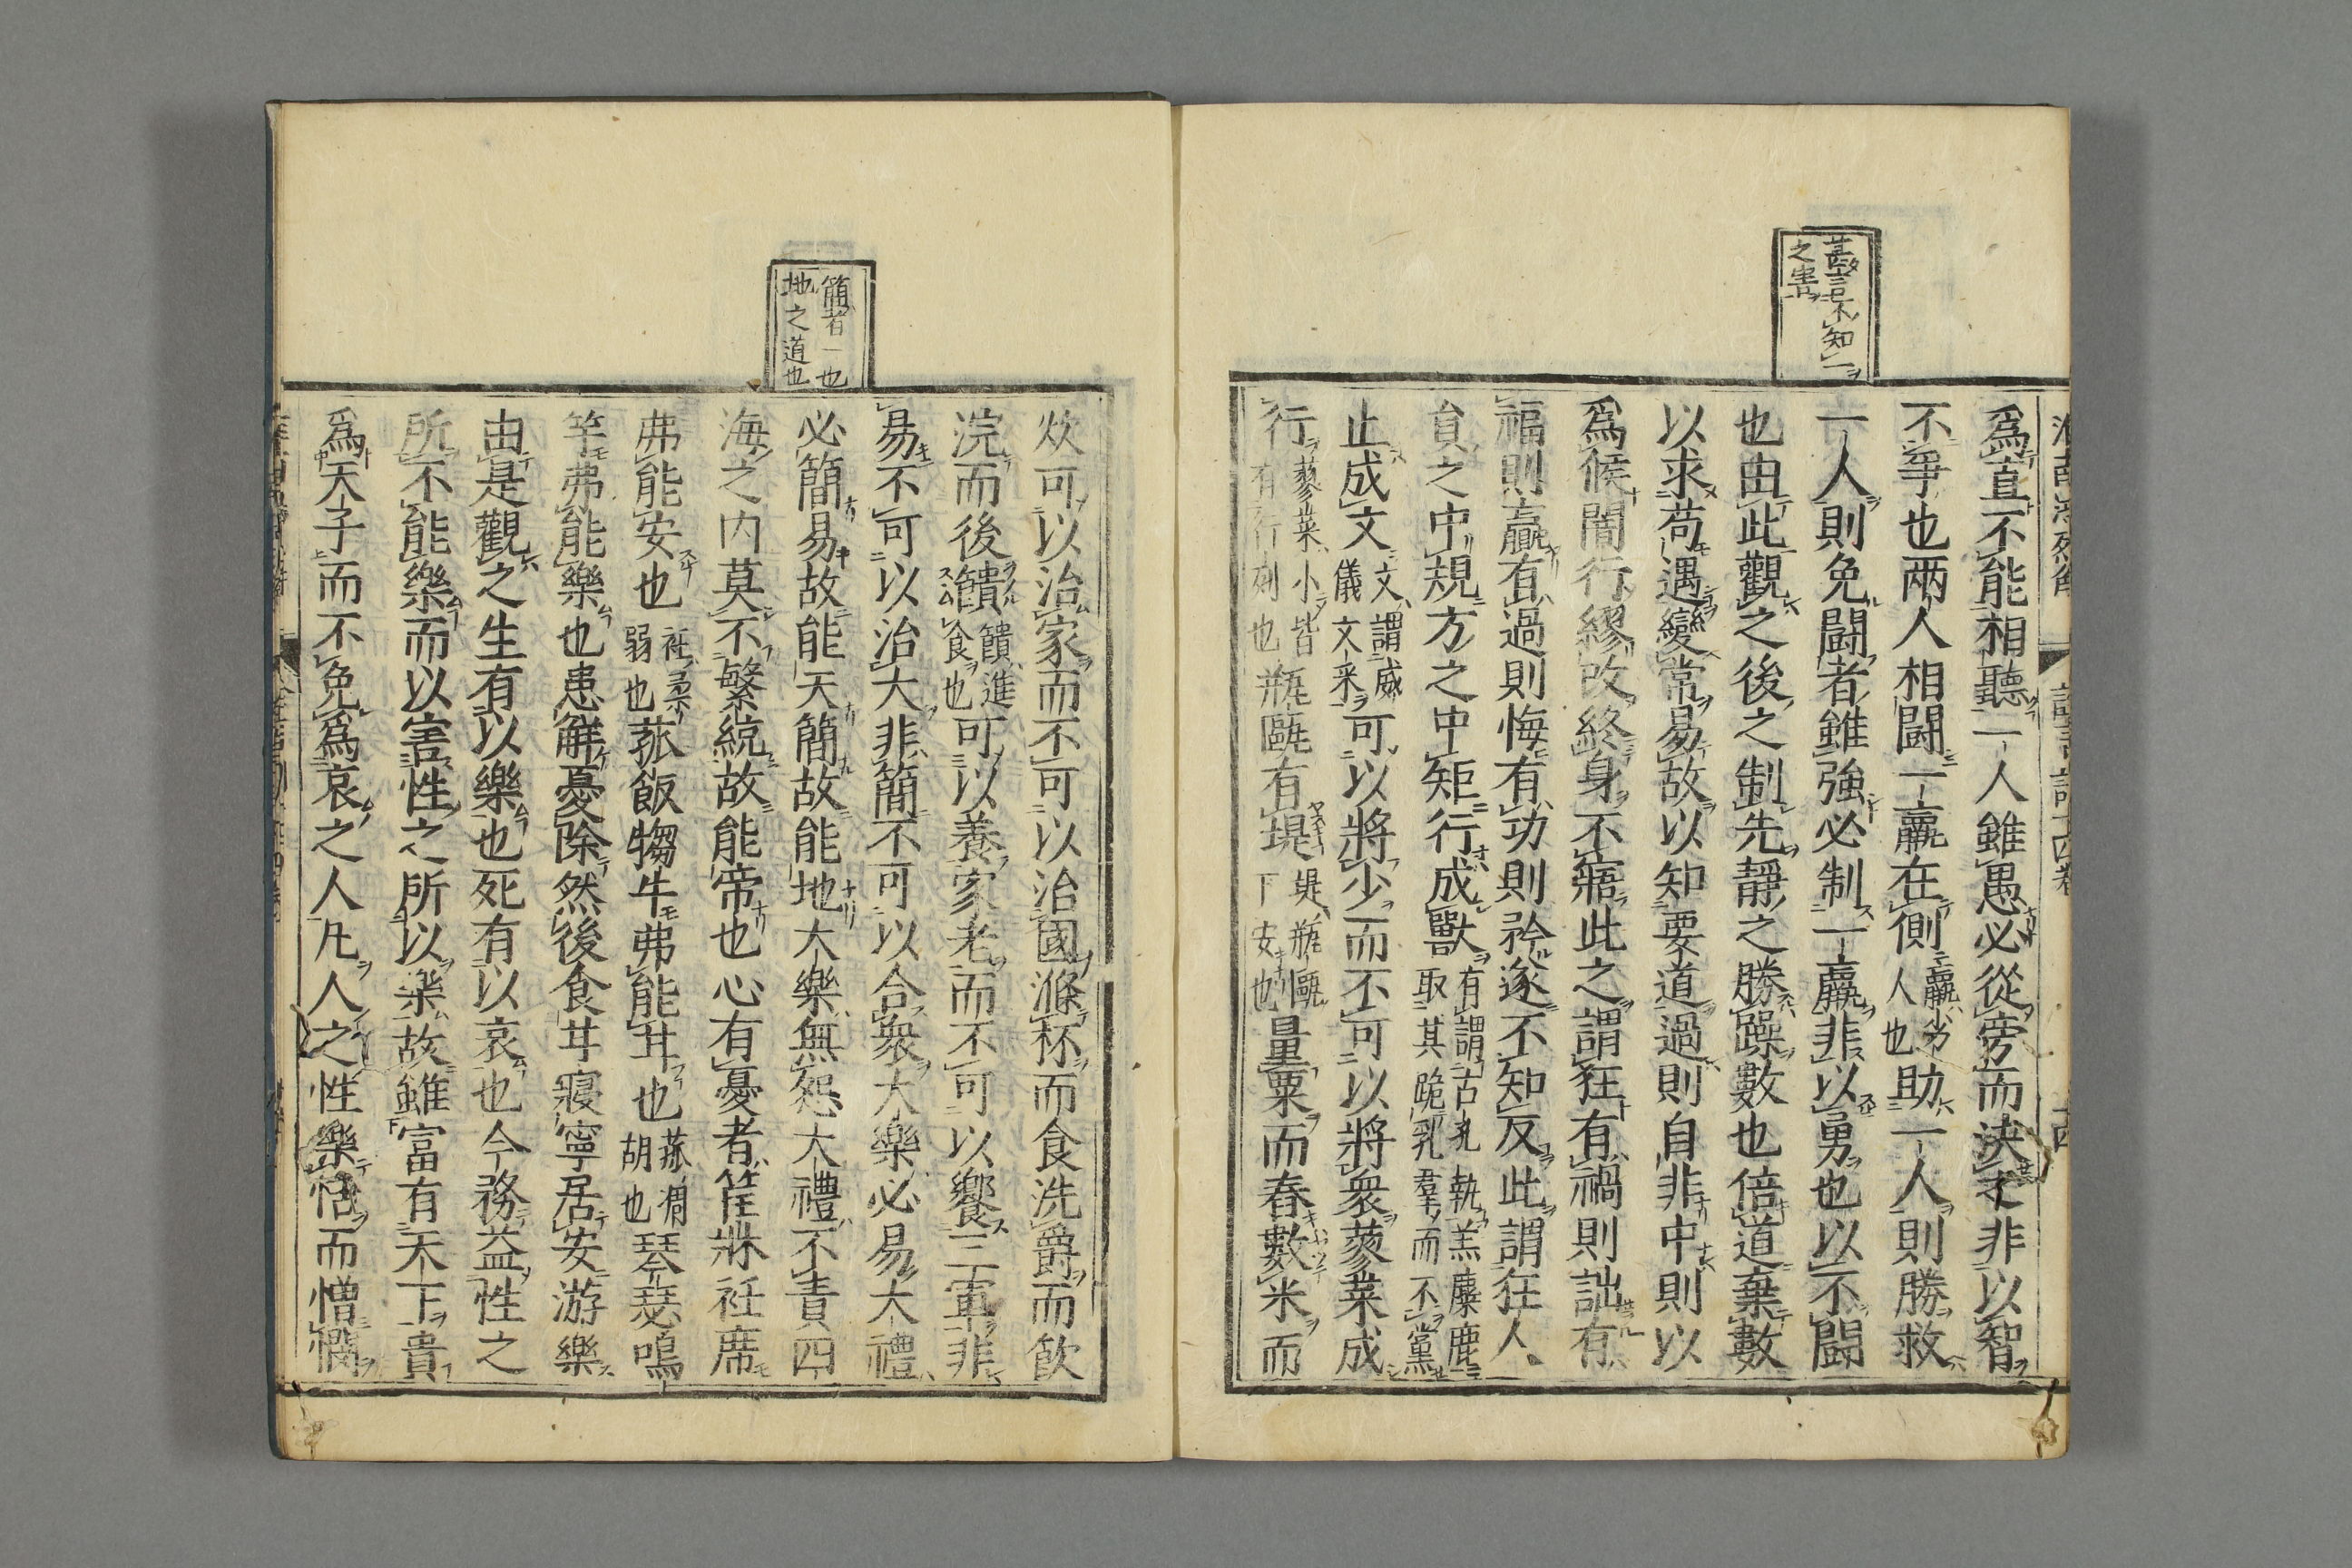 甚言不知一
之害
爲直不能相聽一人雖愚必從旁而決之非以智
不爭也兩人相鬪一羸在側羸劣人也助一人則勝救
一人則免鬪者雖強必制一羸非以勇也以不鬪
也由此觀之後之制先靜之勝躁數也倍道棄數
以求苟遇變常易故以知要道過則自非中則以
爲候闇行繆改終身不寤此之謂狂有禍則詘有
福則羸有過則悔有功則矜遂不知反此謂狂人
貟之中規方之中矩行成獸有謂古礼執羔麋鹿取其跪乳羣而不黨
止成文文謂威儀文采可以將少而不可以將衆蓼菜成
行蓼菜小皆有行列也瓶甌有堤堤瓶甌下安也量粟而舂數米而
簡者一也
地之道也
炊可以治家而不可以治國滌杯而食洗爵而飮
浣而後饋饋進食也可以養家老而不可以饗三軍非
易不可以治大非簡不可以合衆大樂必易大禮
必簡易故能天簡故能地大樂無怨大禮不責四
海之内莫不繫統故能帝也心有憂者筐牀衽席
弗能安也衽柔弱也菰飯犓牛弗能甘也菰凋胡也琴瑟鳴
竽弗能樂也患解憂除然後食甘寢寧居安游樂
由是觀之生有以樂也死有以哀也今務益性之
所不能樂而以害性之所以樂故雖富有天下貴
爲天子而不免爲哀之人凡人之性樂恬而憎憫